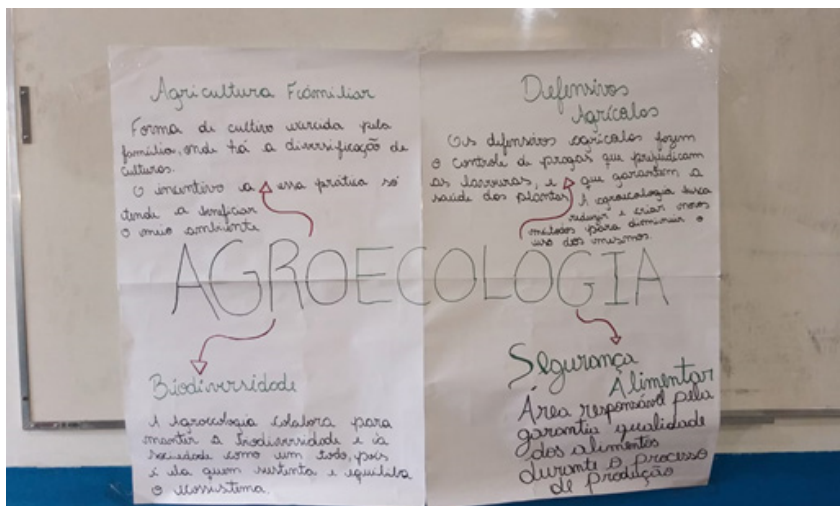 Agricultura Familiar
Forma de cultivo exercida pela
família, onde há a diversificação de
culturas.
O incentivo a essa prática só
tende a beneficiar
o meio ambiente
Defensivos
Agrícolas
Os defensivos agrícolas fazem
o controle de pragas que prejudicam
as lavouras, e que garantem a
saúde das plantas. A agroecologia busca
reduzir e criar novos
métodos para diminuir o
uso dos mesmos.
AGROECOLOGIA
Biodiversidade
A Agroecologia colabora para
manter a biodiversidade e a
sociedade como um todo, pois
é ela quem sustenta e equilibra
o ecossistema.
Segurança
Alimentar
Área responsável pela
garantia qualidade
dos alimentos
durante o processo
de produção